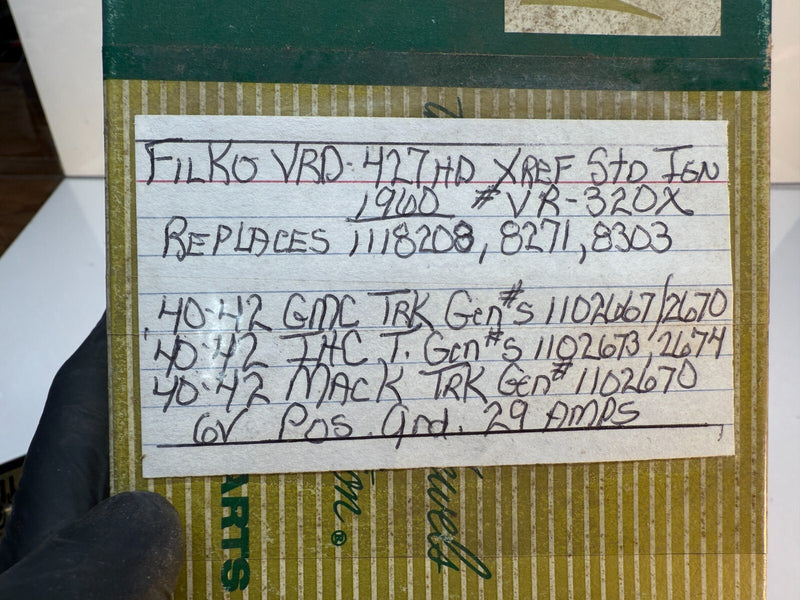 FILKO VRD-427HD XREF STD IGN
1960 # VR-320X
REPLACES 1118208, 8271, 8303
40-42 GMC TRK Gen#s 1102667/2670
40-42 IHC T. Gen#s 1102673, 2674
40-42 MACK TRK Gen# 1102670
6V Pos. Gnd. 29 AMPS
ARTS
®